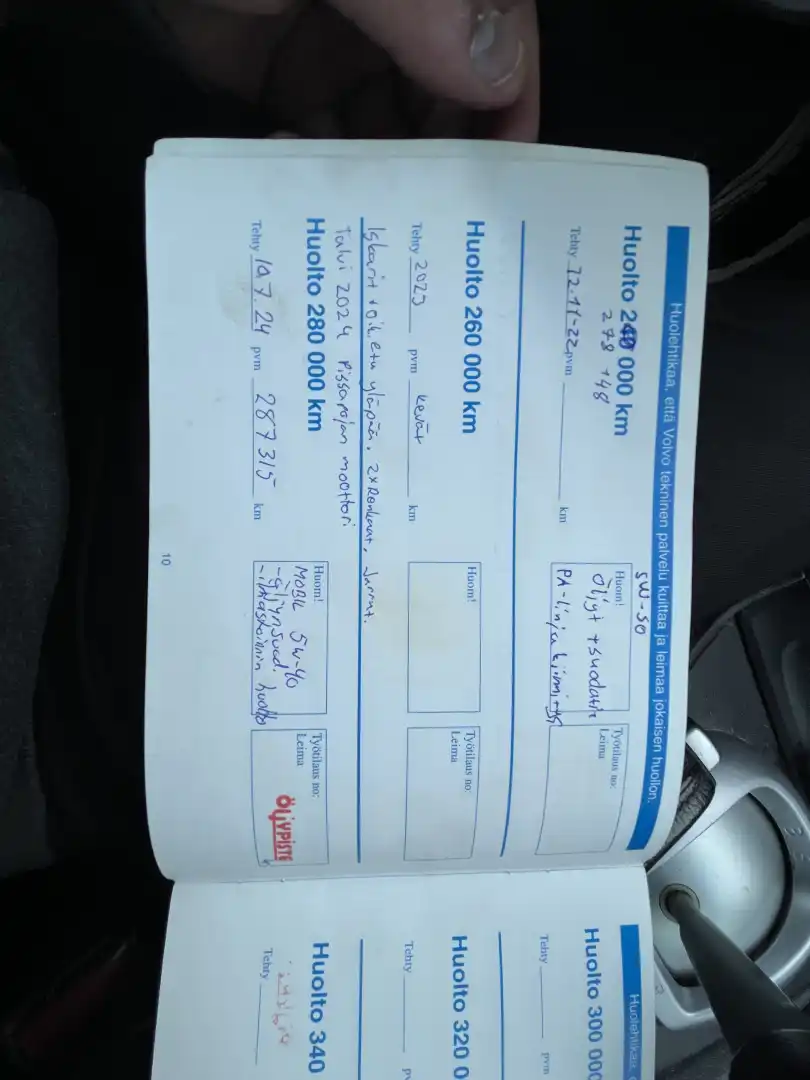 Huolehtikaa, että Volvo tekninen palvelu kuittaa ja leimaa jokaisen huollon.
Huolto 240 000 km
278 748
Tehty 12.11-22 pvm km
5W-50
Huom!
Öljyt + suodatin
PA-linja kiinnitys
Työtilaus no:
Leima
Huolto 260 000 km
Tehty 2023 pvm kevät km
Iskarit + oik. etu yläpää, 2x Renkaat, Jarrut.
Huom!
Työtilaus no:
Leima
Talvi 2024 Pissapojan moottori
Huolto 280 000 km
Tehty 10.7.24 pvm 287315 km
Huom!
MOBIL 5W-40
-öljynsuod.
-ilmastoinnin huolto
Työtilaus no:
Leima
ÖLJYPISTE
10
Huolehtikaa,
Huolto 300 000
Tehty pvm
Huolto 320 0
Tehty
Huolto 340
Tehty